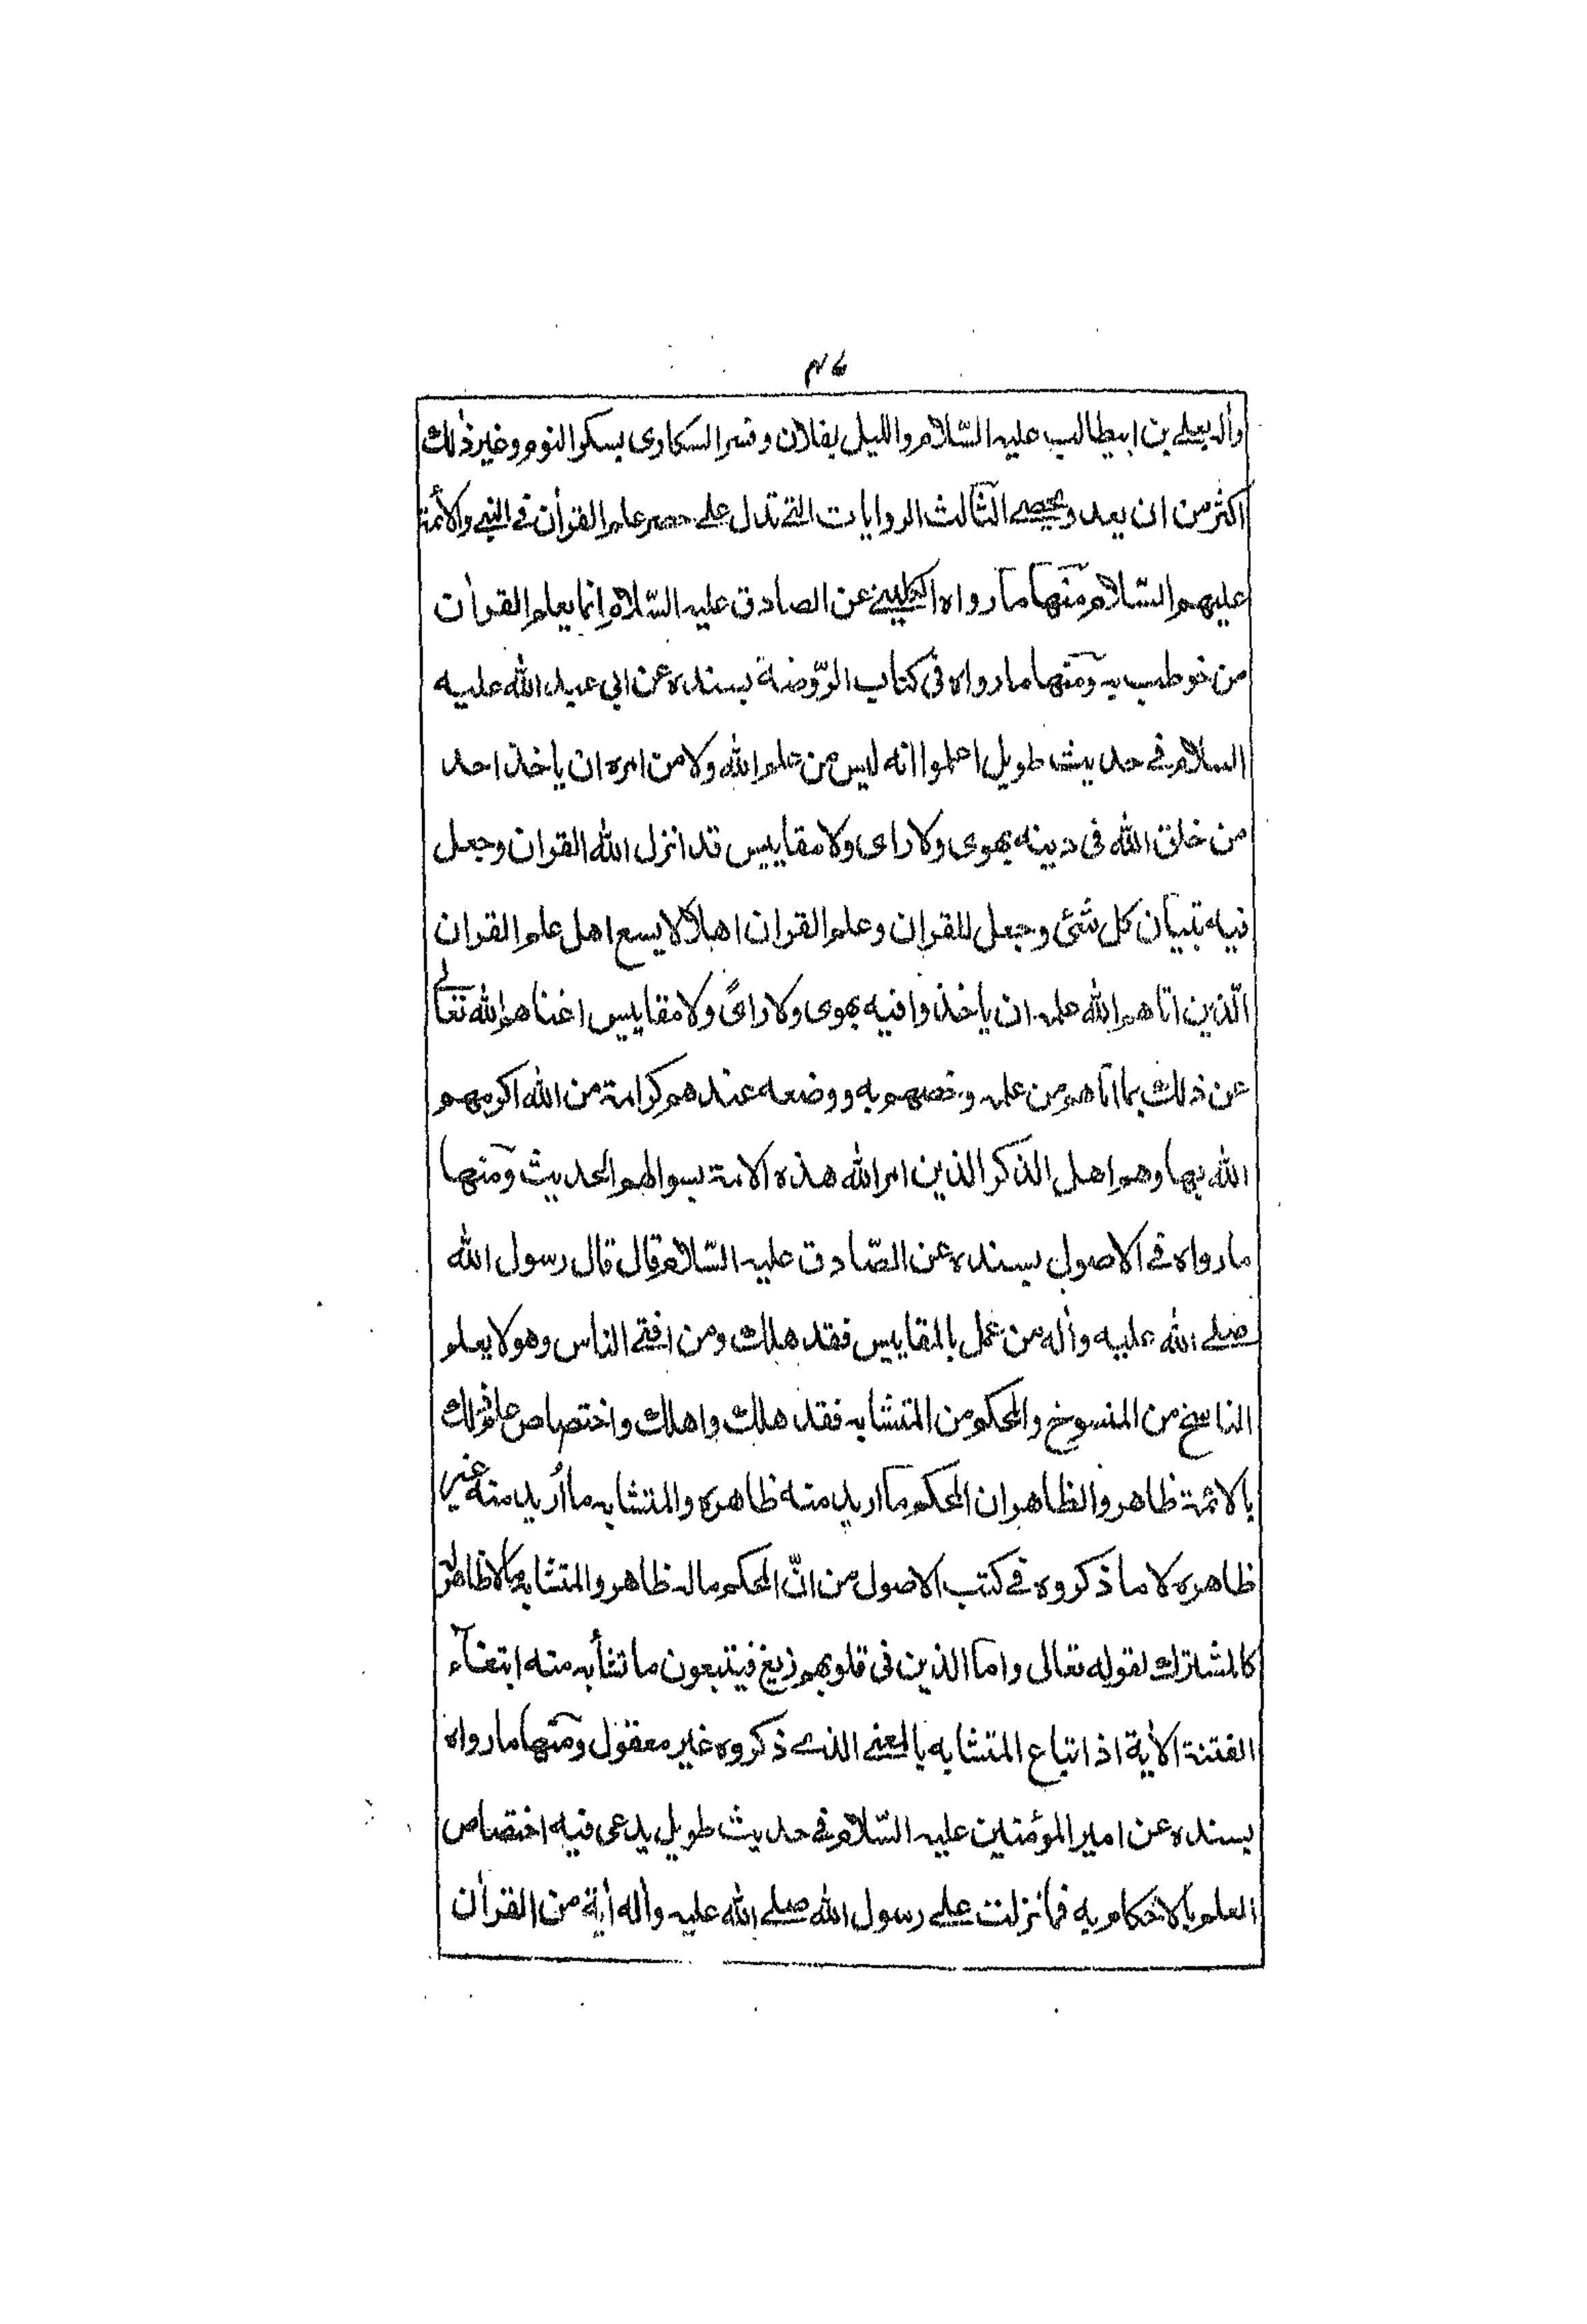 ۴۶
وأله بعلي بن ابيطالب عليه السّلام والليل بفلان وفسر السكارى بسكر النوم وغير ذلك
اكثر من ان يعد ويحصى الثالث الروايات التي تدل على حصر علم القرأن في النبي والأئمة
عليهم السّلام منها ما رواه الكليني عن الصادق عليه السّلام انما يعلم القرأن
من خوطب به ومنها ما رواه في كتاب الرّوضة بسنده عن ابى عبد الله عليه
السلام في حديث طويل اعلموا انه ليس من علم الله ولا من امره ان ياخذ احد
من خلق الله فى دينه بهوى ولا راى ولا مقاييس قد انزل الله القران وجعل
فيه تبيان كل شئ وجعل للقران وعلم القران اهلا لا يسع اهل علم القران
الّذين اتاهم الله علمه ان ياخذوا فيه بهوى ولا راىً ولا مقاييس اغناهم الله تعالى
عن ذلك بما اتاهم من علمه وخصهم به ووضعه عندهم كرامة من الله اكرمهم
الله بها وهم اهل الذكر الذين امر الله هذه الامة بسوالهم الحديث ومنها
ما رواه في الاصول بسنده عن الصّادق عليه السّلام قال قال رسول الله
صلى الله عليه وأله من عمل بالمقاييس فقد هلك ومن افتى الناس وهو لا يعلم
الناسخ من المنسوخ والمحكم من المتشابه فقد هلك واهلك واختصاص علم ذلك
بالائمة ظاهر والظاهر ان المحكم ما اريد منه ظاهره والمتشابه ما أريد منه غير
ظاهره لا ما ذكروه في كتب الاصول من انّ المحكم ماله ظاهر والمتشابه مالا ظاهر له
كالمشترك لقوله تعالى واما الذين فى قلوبهم زيغ فيتبعون ما تشأبه منه ابتغاء
الفتنة الأية اذ اتباع المتشابه بالمعنى الذي ذكروه غير معقول ومنها ما رواه
بسنده عن امير المؤمنين عليه السّلام في حديث طويل يدعى فيه اختصاص
العلم بالاحكام به فما نزلت على رسول الله صلى الله عليه وأله أية من القرأن